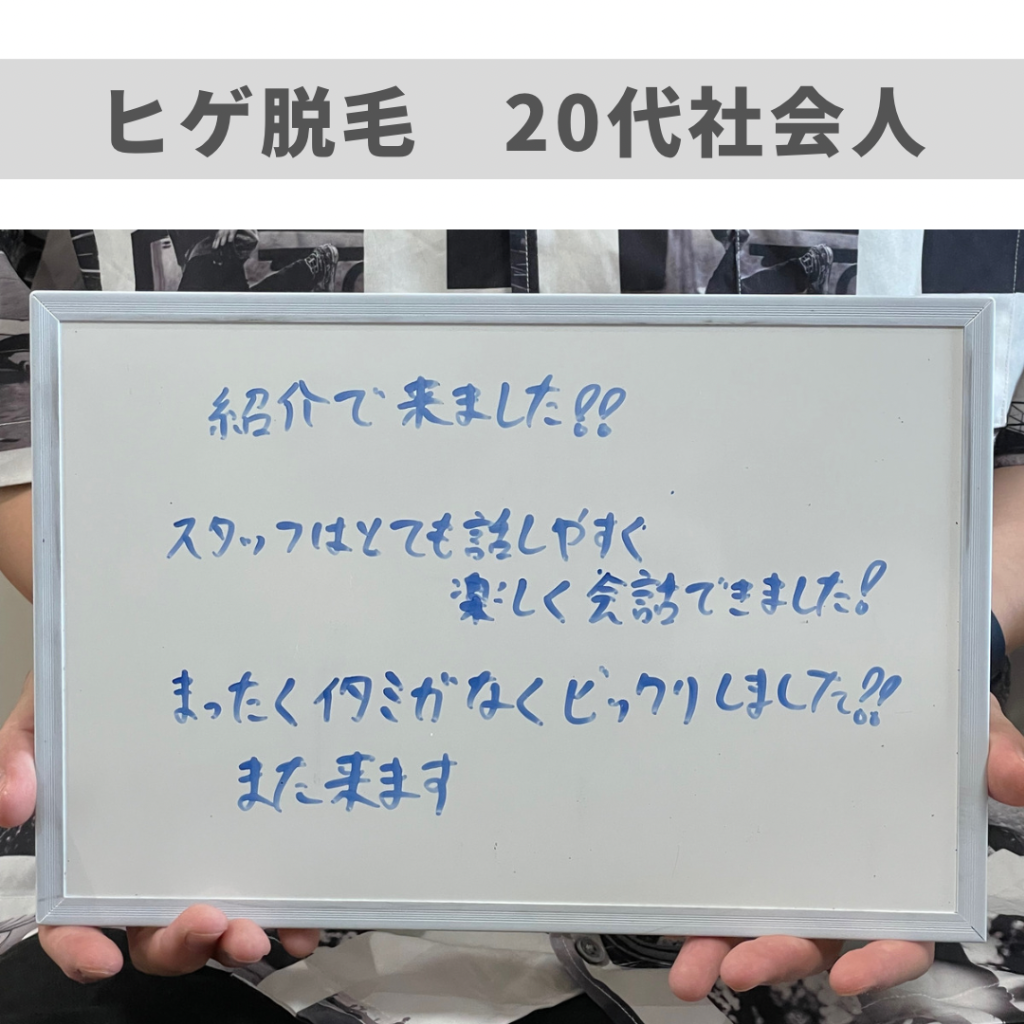 ヒゲ脱毛　20代社会人
紹介で来ました!!
スタッフはとても話しやすく
楽しく会話できました!
まったくイタミがなくビックリしました!!
また来ます